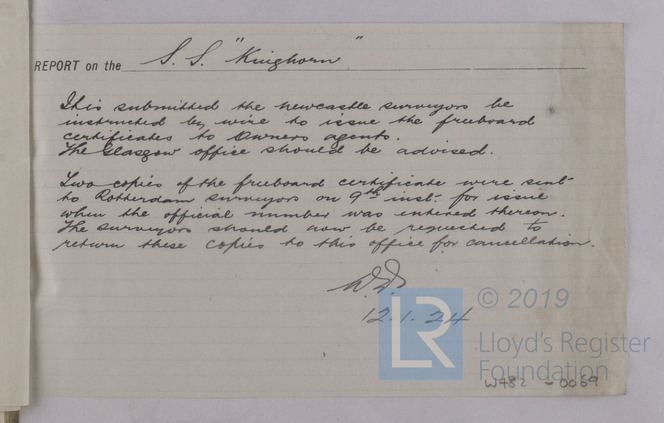 REPORT on the S. S. "Kinghorn"
It is submitted the Newcastle surveyors be
instructed by wire to issue the freeboard
certificates to Owners agents.
The Glasgow office should be advised.
Two copies of the freeboard certificate were sent
to Rotterdam surveyors on 9th inst. for issue
when the official number was entered thereon.
The surveyors should now be requested to
return these copies to this office for cancellation.
12.1.24
LR
© 2019
Lloyd's Register
Foundation
W482 - 0069